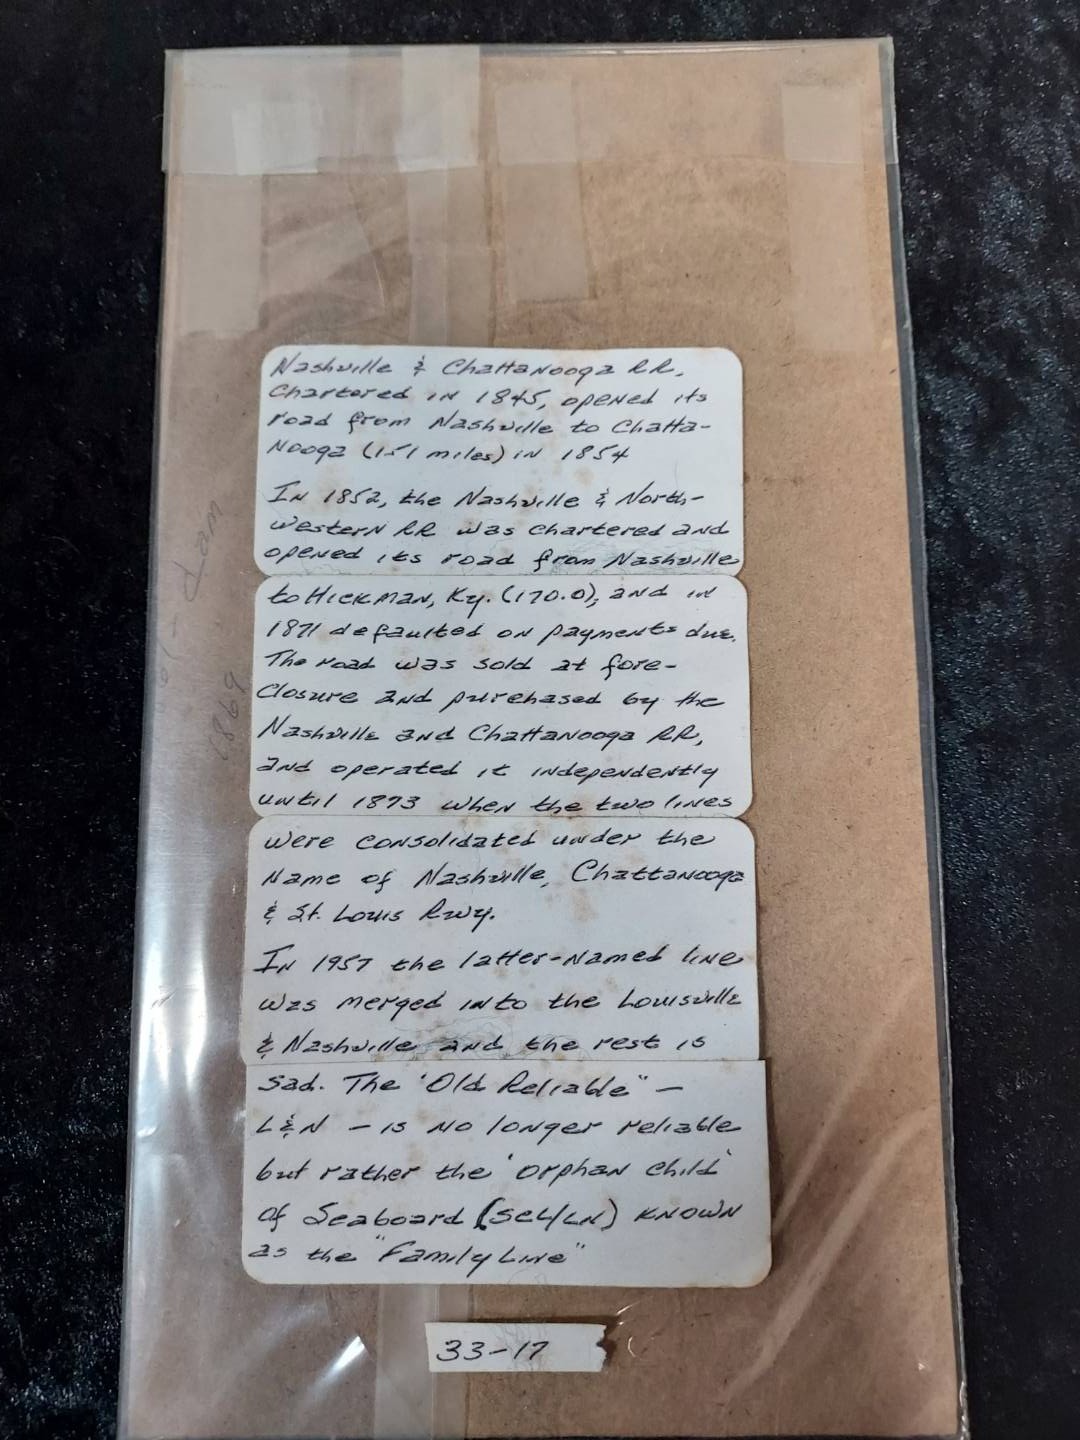 Nashville & Chattanooga RR,
Chartered in 1845, opened its
road from Nashville to Chatta-
nooga (151 miles) in 1854
In 1852, the Nashville & North-
western RR was chartered and
opened its road from Nashville
to Hickman, Ky. (170.0), and in
1871 defaulted on payments due.
The road was sold at fore-
closure and purchased by the
Nashville and Chattanooga RR,
and operated it independently
until 1873 when the two lines
were consolidated under the
name of Nashville, Chattanooga
& St. Louis Rwy.
In 1957 the latter-named line
was merged into the Louisville
& Nashville and the rest is
sad. The "Old Reliable" —
L&N — is no longer reliable
but rather the 'orphan child'
of Seaboard (SCL/LN) known
as the "Family Line"
33-17
1869